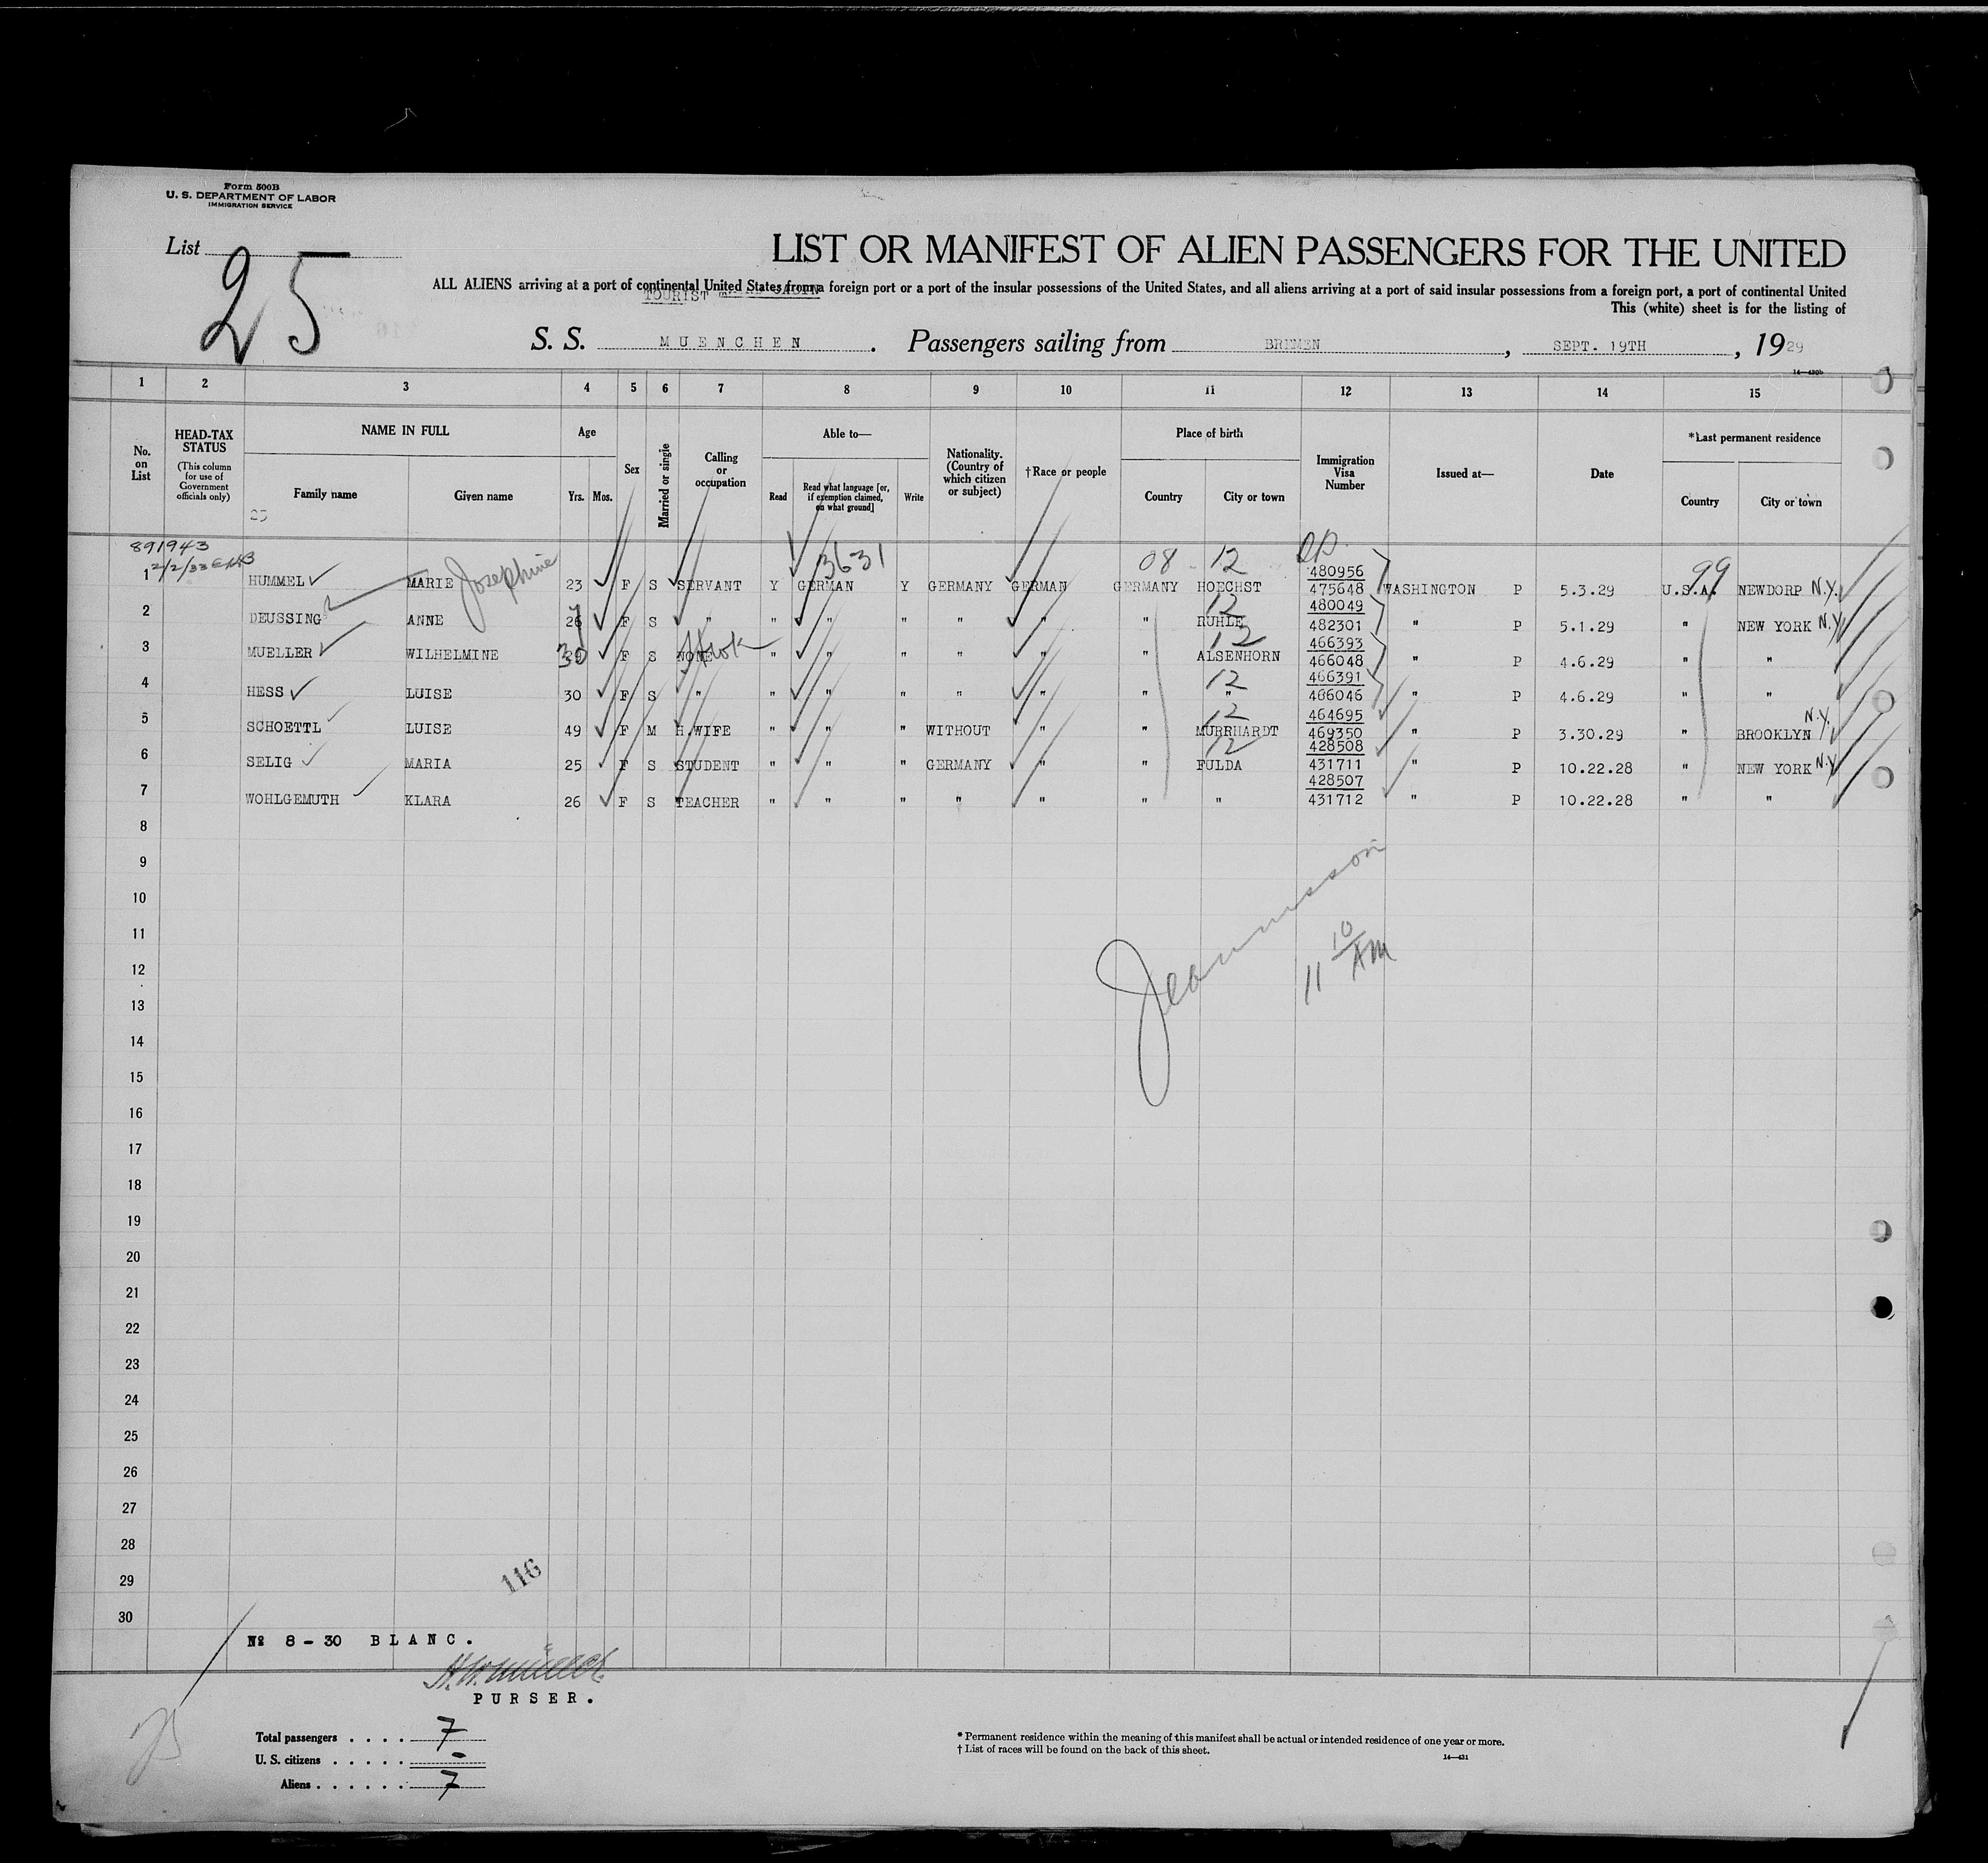 Form 500B
U. S. DEPARTMENT OF LABOR
IMMIGRATION SERVICE
List 25
LIST OR MANIFEST OF ALIEN PASSENGERS FOR THE UNITED
ALL ALIENS arriving at a port of continental United States from a foreign port or a port of the insular possessions of the United States, and all aliens arriving at a port of said insular possessions from a foreign port, a port of continental United
TOURIST
This (white) sheet is for the listing of
S. S. MUENCHEN. Passengers sailing from BREMEN, SEPT. 19TH, 1929
14—430b
1 2 3 4 5 6 7 8 9 10 11 12 13 14 15
No. on List
HEAD-TAX STATUS
(This column for use of Government officials only)
NAME IN FULL
Family name
Given name
Age
Yrs. Mos.
Sex
Married or single
Calling or occupation
Able to—
Read
Read what language [or, if exemption claimed, on what ground]
Write
Nationality. (Country of which citizen or subject)
†Race or people
Place of birth
Country
City or town
Immigration Visa Number
Issued at—
Date
*Last permanent residence
Country
City or town
25
891943
2/2/33
3631 08 12 99
480956
1 HUMMEL MARIE Josephine 23 F S SERVANT Y GERMAN Y GERMANY GERMAN GERMANY HOECHST 475648 WASHINGTON P 5.3.29 U.S.A. NEWDORP N.Y.
12 480049
2 DEUSSING ANNE 26 F S " " " " " " " RUHLE 482301 " P 5.1.29 " NEW YORK N.Y.
12 466393
3 MUELLER WILHELMINE 30 F S NONE " " " " " " ALSENHORN 466048 " P 4.6.29 " "
12 466391
4 HESS LUISE 30 F S " " " " " " " " 466046 " P 4.6.29 " "
12 464695 N.Y.
5 SCHOETTL LUISE 49 F M H.WIFE " " " WITHOUT " " MURRHARDT 469350 " P 3.30.29 " BROOKLYN
12 428508
6 SELIG MARIA 25 F S STUDENT " " " GERMANY " " FULDA 431711 " P 10.22.28 " NEW YORK N.Y.
428507
7 WOHLGEMUTH KLARA 26 F S TEACHER " " " " " " " 431712 " P 10.22.28 " "
8
9
10
11
12
13
14
15
16
17
18
19
20
21
22
23
24
25
26
27
28
29
30
11 10 AM
116
No 8-30 BLANC.
PURSER.
Total passengers . . . . 7
U. S. citizens . . . . . -
Aliens . . . . . . 7
* Permanent residence within the meaning of this manifest shall be actual or intended residence of one year or more.
† List of races will be found on the back of this sheet.
14—431